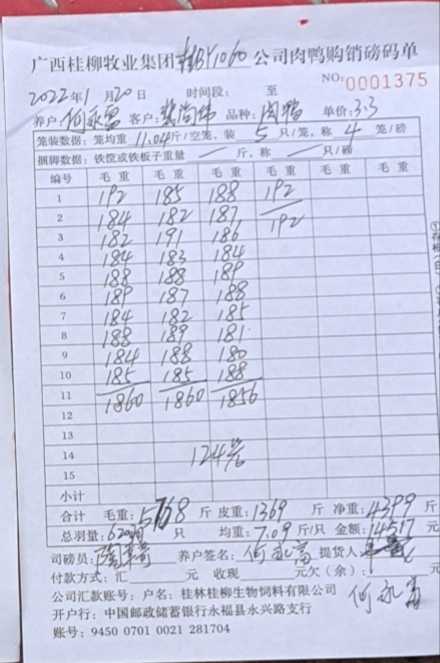 广西桂柳牧业集团桂柳BY1060公司肉鸭购销磅码单
NO:0001375
2022年1月20日 时间段: 至
养户:何永富 客户: 品种:肉鸭 单价:3.3
笼装数据:笼均重11.04斤/空笼,装5只/笼,称4笼/磅
捆脚数据:铁筐或铁板子重量 斤,称 只/磅
编号 毛重 毛重 毛重 毛重 毛重 毛重
1 192 185 188 192
2 184 182 187 192
3 182 191 186
4 184 183 184
5 188 188 189
6 189 187 188
7 184 182 185
8 188 189 181
9 184 188 180
10 185 185 188
11 1860 1860 1856
12
13
14 124笼
15
小计
合计 毛重:5768斤 皮重:1369斤 净重:4399斤
总羽量:620只 只 均重:7.09斤/只 金额:14517元
司磅员: 养户签名:何永富 提货人
付款方式:汇 元 收现 元欠(余): 元
公司汇款账号:户名:桂林桂柳生物饲料有限公司 何永富
开户行:中国邮政储蓄银行永福县永兴路支行
账号:9450 0701 0021 281704